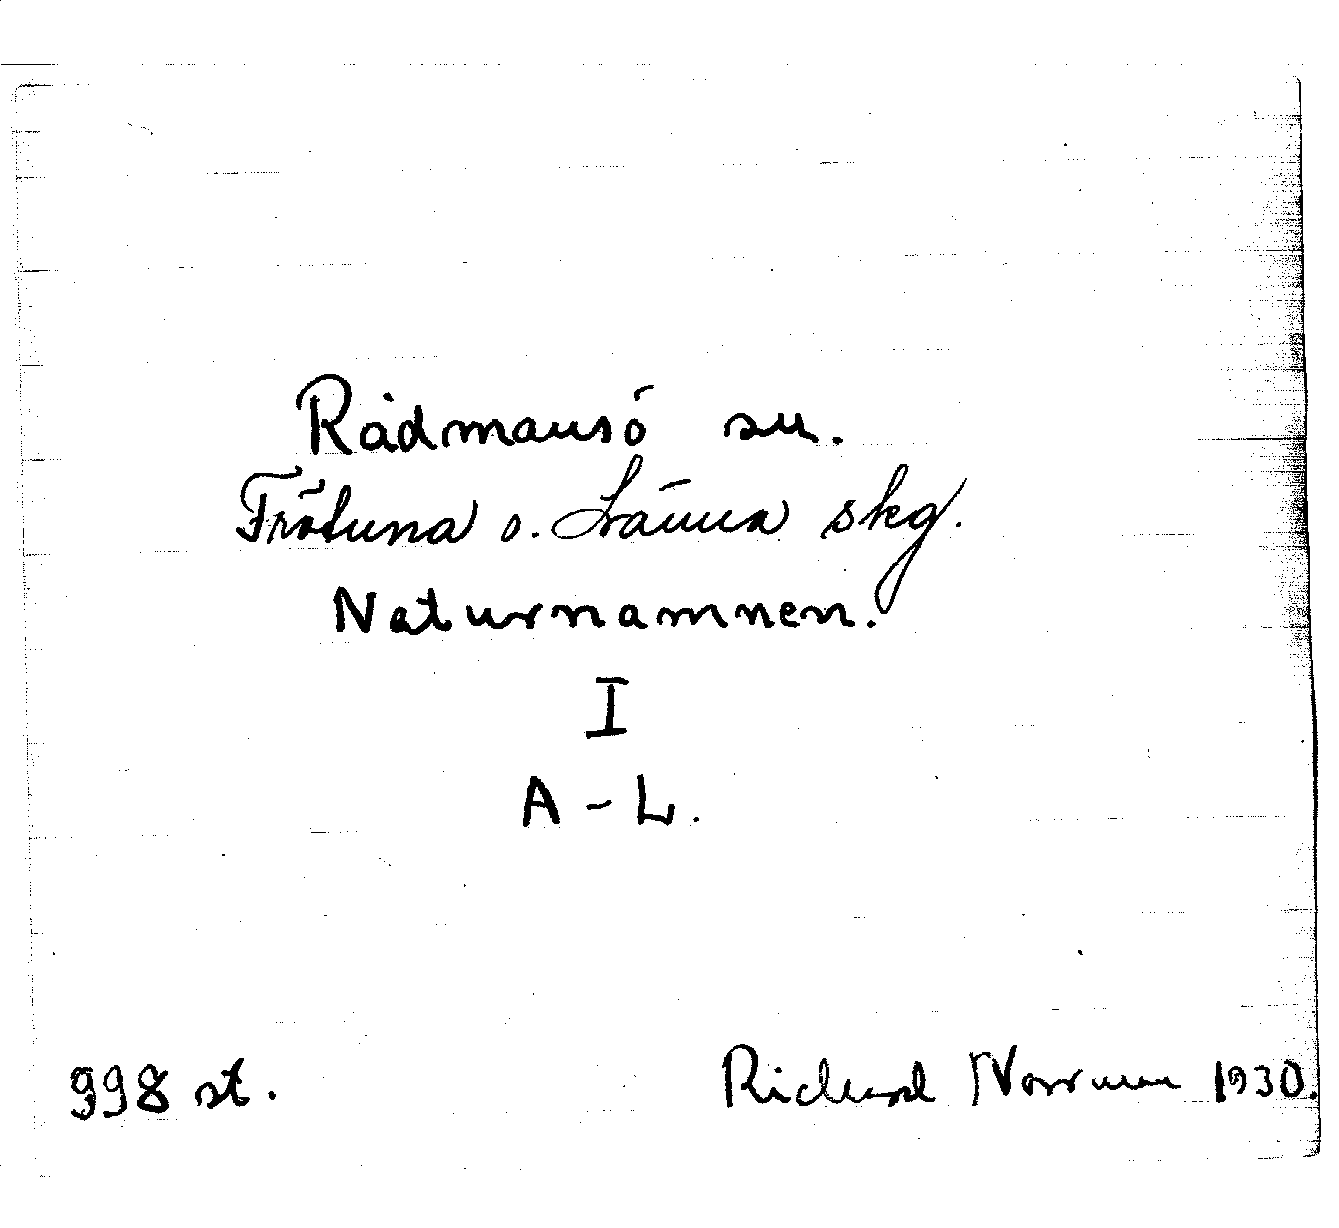 Rådmansö sn.
Frötuna o. Länna skg.
Naturnamnen.
I
A - L.
998 st.
Richard Norrman 1930.